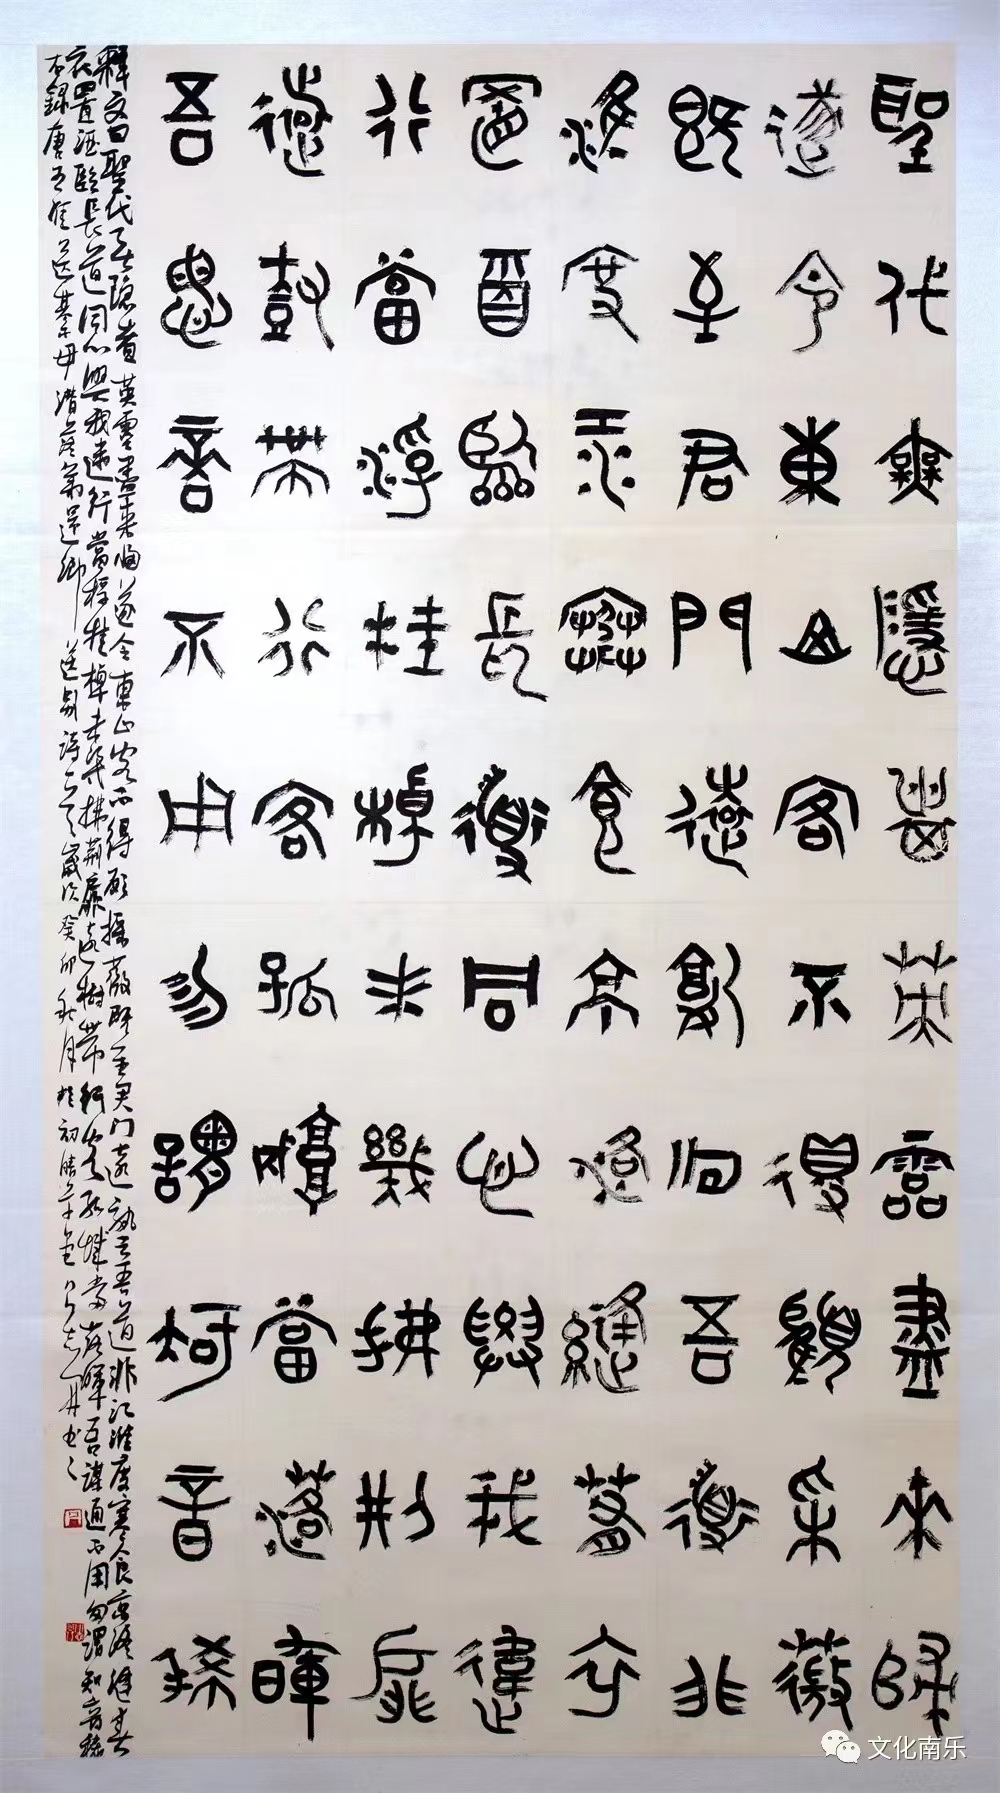 聖代無隱者英靈盡來歸
遂令東山客不得顧采薇
既至君門遠孰向吾道非
淮度江寒食京洛縫春衣
置酒臨長道同心與我違
行當浮桂棹未幾拂荊扉
遠樹帶行客孤城當落暉
吾謀適不用勿謂知音稀
釋文曰聖代無隱者英靈盡來歸遂令東山客不得顧採薇既至君門遠孰云吾道非江淮度寒食京洛縫春
衣置酒臨長道同心與我違行當桴桂棹未幾拂荊扉遠樹帶行客孤城當落暉吾謀適不用勿謂知音稀
右錄唐王維送綦毋潛落第還鄉送別詩一首歲次癸卯秋月於初晴草堂志丹書之
文化南乐